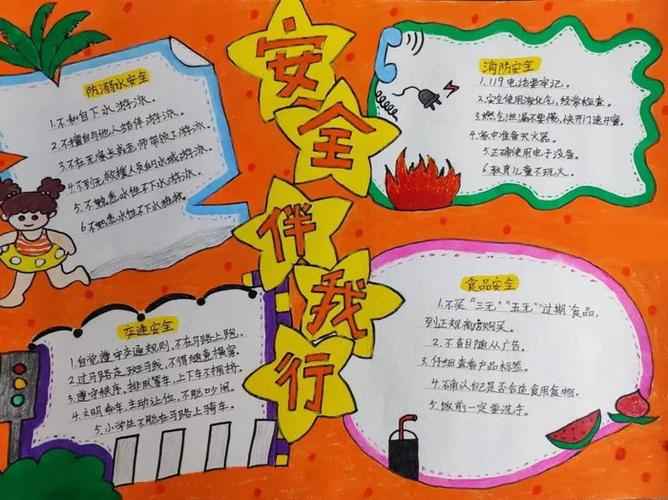 安全伴我行
防溺水安全
1.不私自下水游泳。
2.不擅自与他人结伴游泳。
3.不在无家长或老师带领下游泳。
4.不到无救援人员的水域游泳。
5.不熟悉水性不下水游泳。
6.不熟悉水性不下水施救。
消防安全
1.119电话要牢记。
2.安全使用液化气,经常检查。
3.燃气泄漏不要慌,快开门速开窗。
4.家中准备灭火器。
5.正确使用电子设备。
6.教育儿童不玩火。
交通安全
1.自觉遵守交通规则,不在马路上跑。
2.过马路走斑马线,不得随意横穿。
3.遵守秩序,排队等车,上下车不拥挤。
4.文明乘车,主动让位,不能吵闹。
5.小学生不能在马路上骑车。
食品安全
1.不买“三无”“五无”“过期”食品,
到正规商店购买。
2.不盲目随从广告。
3.仔细查看产品标签。
4.确认自己是否合适食用食物。
5.饭前一定要洗手。